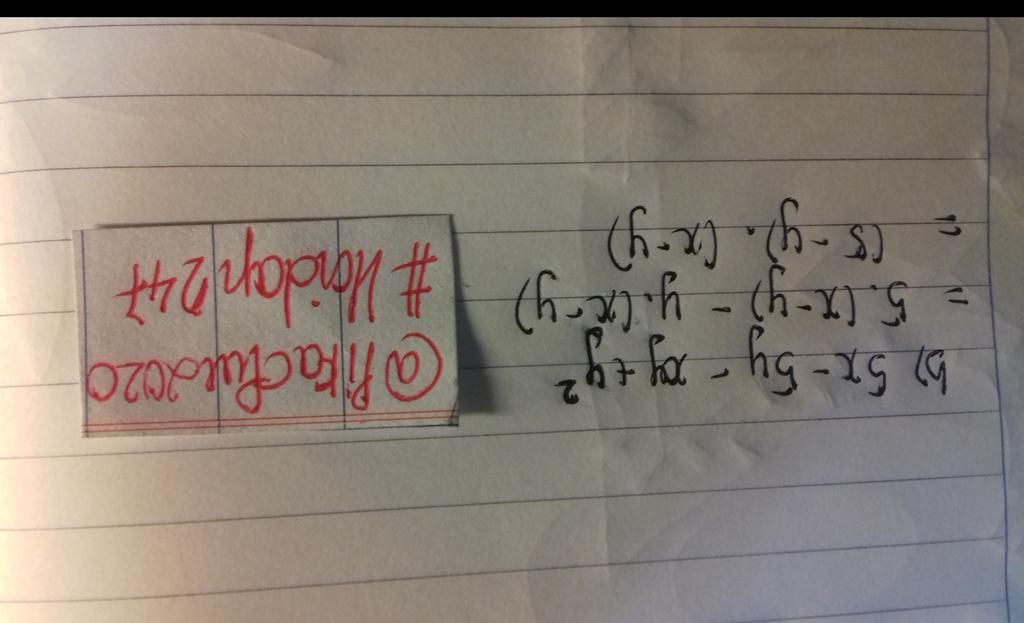 b) 5x - 5y - xy + y²
= 5.(x-y) - y.(x-y)
= (5-y).(x-y)
@pikachue2020
#Hoidap247